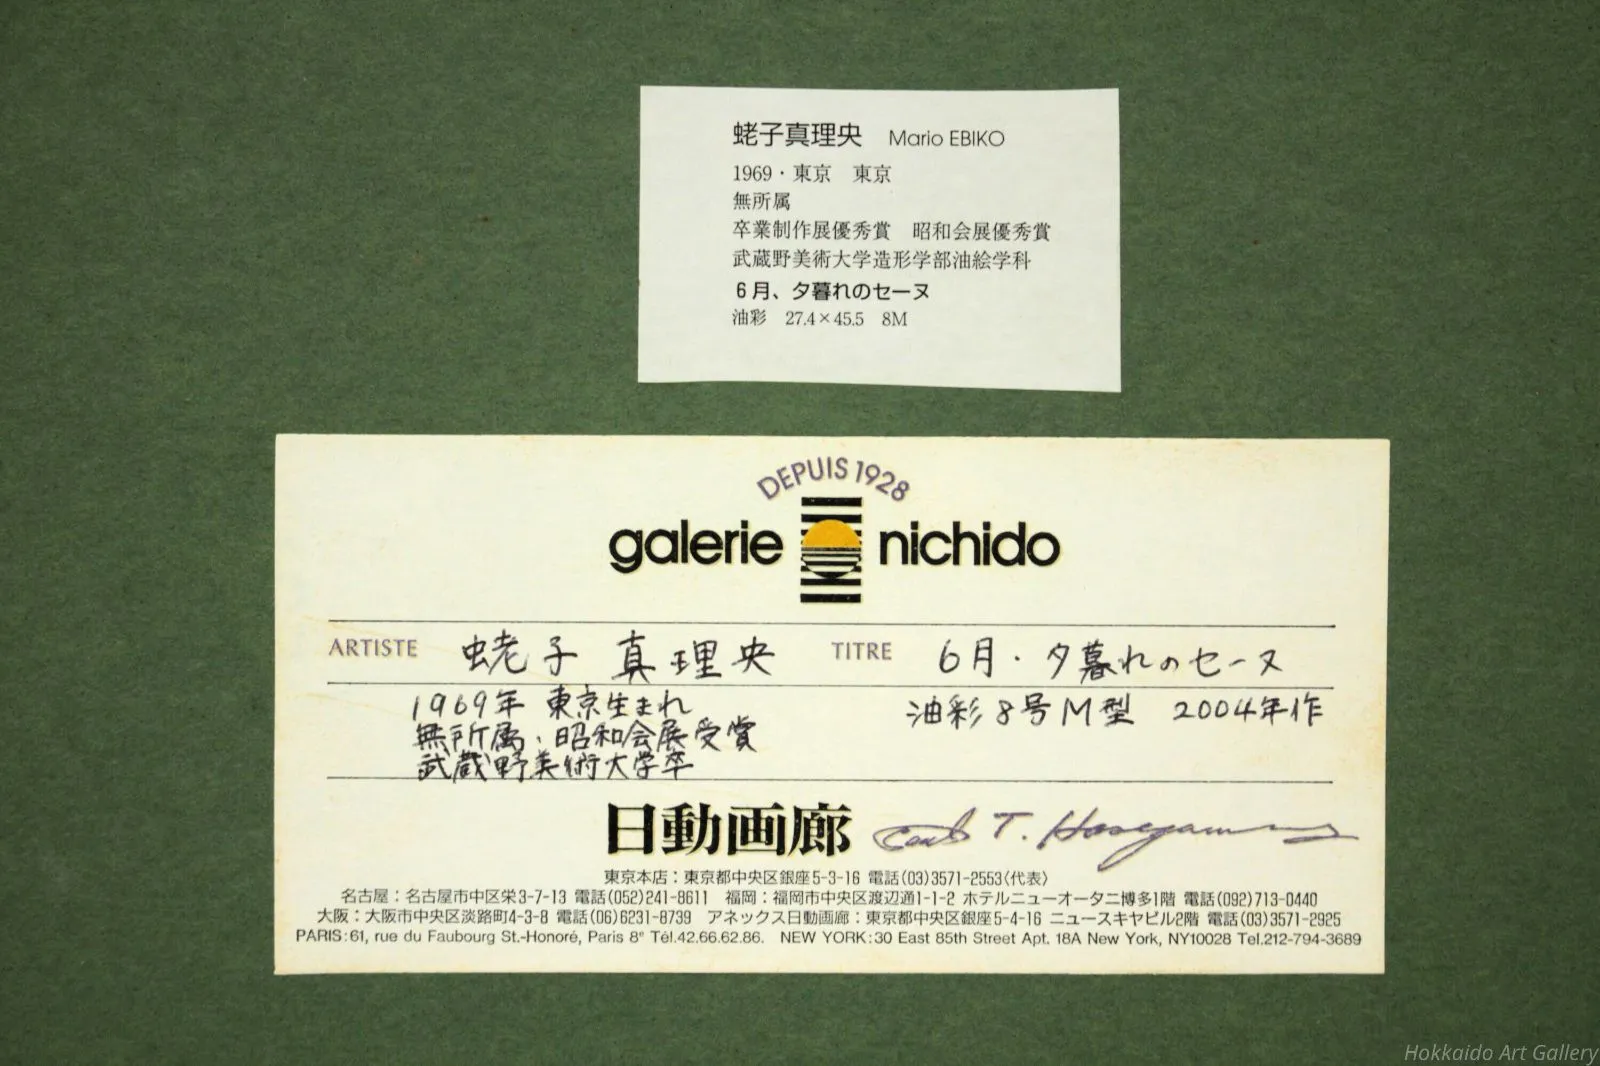 蛯子真理央 Mario EBIKO
1969・東京 東京
無所属
卒業制作展優秀賞 昭和会展優秀賞
武蔵野美術大学造形学部油絵学科
6月、夕暮れのセーヌ
油彩 27.4×45.5 8M
DEPUIS 1928
galerie nichido
ARTISTE 蛯子 真理央 TITRE 6月・夕暮れのセーヌ
1969年 東京生まれ 油彩8号M型 2004年作
無所属、昭和会展受賞
武蔵野美術大学卒
日動画廊 T. Hasegawa
東京本店：東京都中央区銀座5-3-16 電話(03)3571-2553〈代表〉
名古屋：名古屋市中区栄3-7-13 電話(052)241-8611 福岡：福岡市中央区渡辺通1-1-2 ホテルニューオータニ博多1階 電話(092)713-0440
大阪：大阪市中央区淡路町4-3-8 電話(06)6231-8739 アネックス日動画廊：東京都中央区銀座5-4-16 ニュースキヤビル2階 電話(03)3571-2925
PARIS:61, rue du Faubourg St.-Honoré, Paris 8e Tél.42.66.62.86. NEW YORK:30 East 85th Street Apt. 18A New York, NY10028 Tel.212-794-3689
Hokkaido Art Gallery